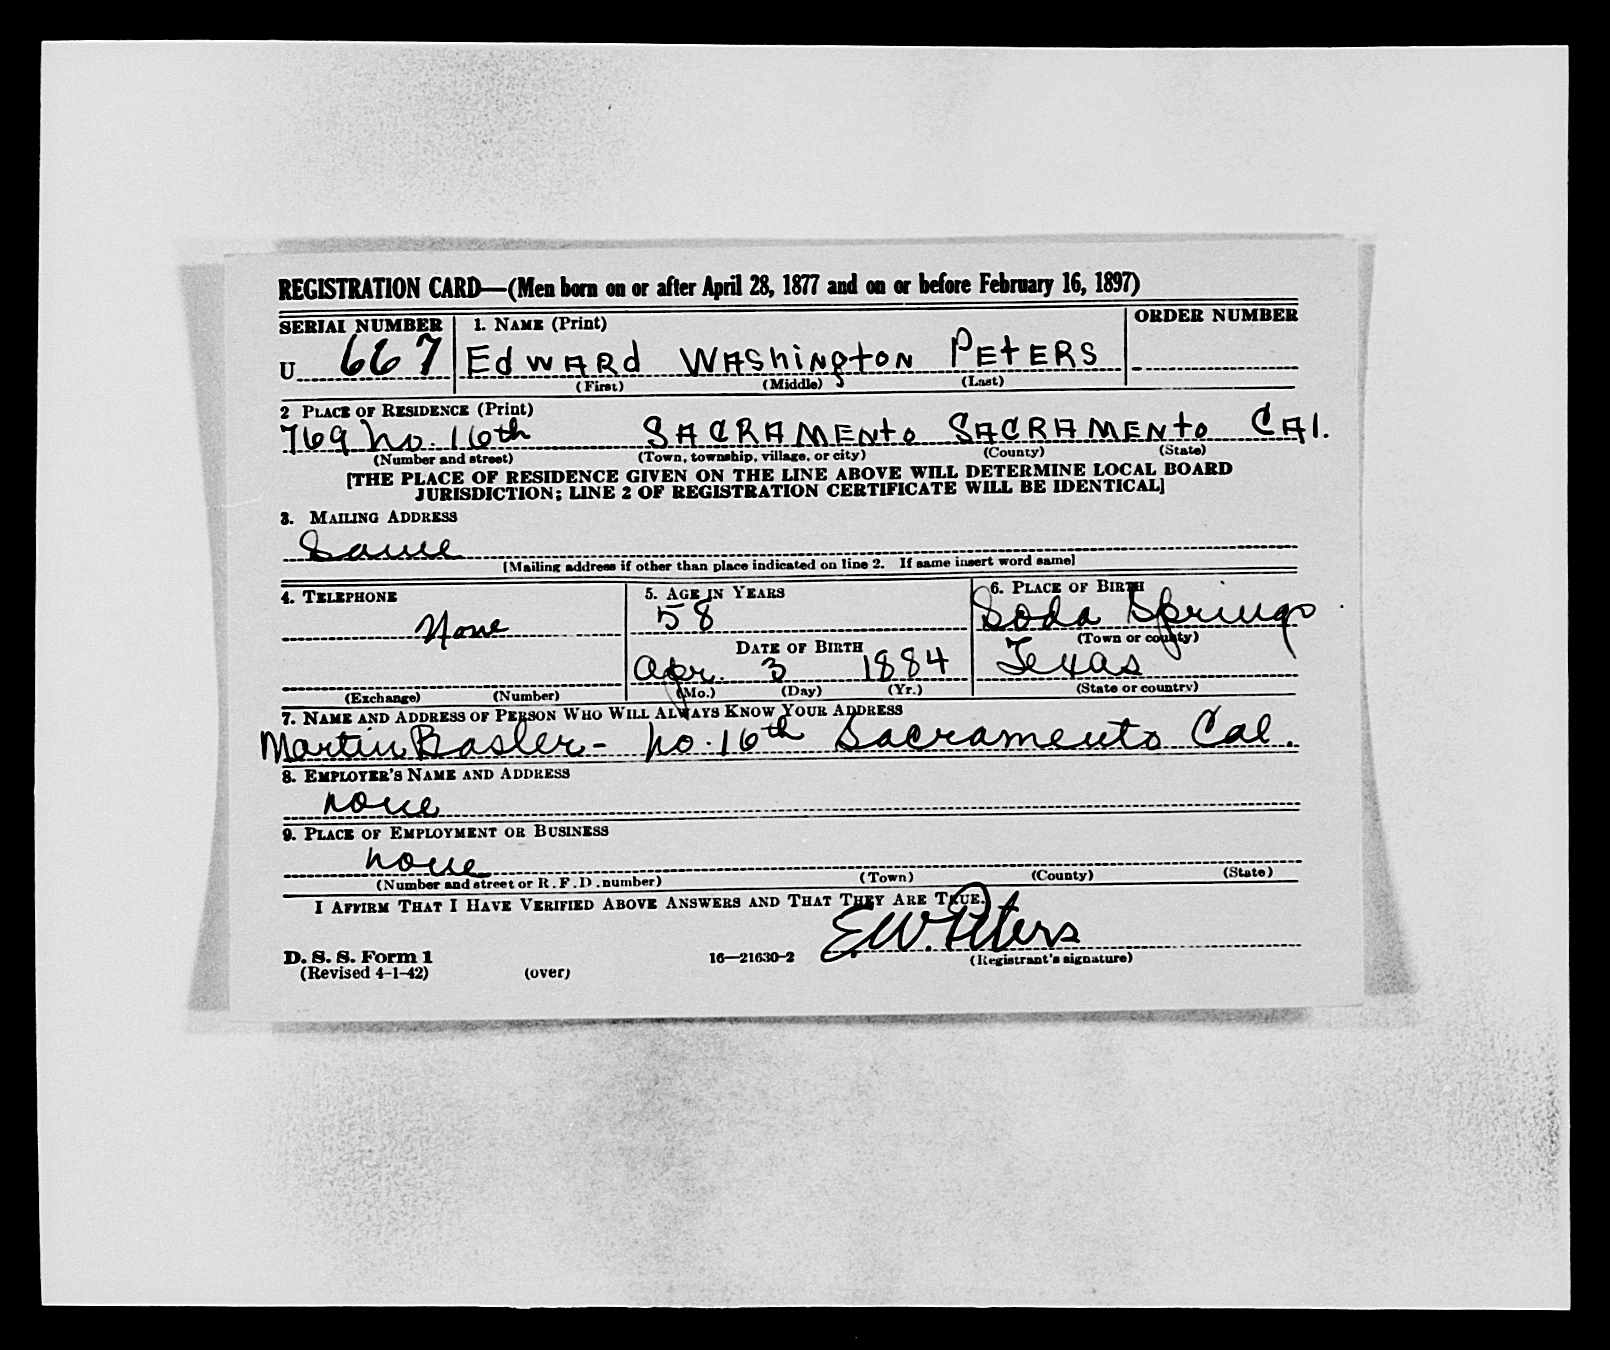 REGISTRATION CARD—(Men born on or after April 28, 1877 and on or before February 16, 1897)
SERIAL NUMBER 1. NAME (Print) ORDER NUMBER
U 667 Edward Washington Peters
(First) (Middle) (Last)
2 PLACE OF RESIDENCE (Print)
769 no. 16th Sacramento Sacramento Cal.
(Number and street) (Town, township, village, or city) (County) (State)
[THE PLACE OF RESIDENCE GIVEN ON THE LINE ABOVE WILL DETERMINE LOCAL BOARD
JURISDICTION; LINE 2 OF REGISTRATION CERTIFICATE WILL BE IDENTICAL]
3. MAILING ADDRESS
Same
[Mailing address if other than place indicated on line 2. If same insert word same]
4. TELEPHONE 5. AGE IN YEARS 6. PLACE OF BIRTH
None 58 Soda Springs
DATE OF BIRTH (Town or county)
Apr. 3 1884 Texas
(Exchange) (Number) (Mo.) (Day) (Yr.) (State or country)
7. NAME AND ADDRESS OF PERSON WHO WILL ALWAYS KNOW YOUR ADDRESS
Martin Basler - no. 16th Sacramento Cal.
8. EMPLOYER'S NAME AND ADDRESS
none
9. PLACE OF EMPLOYMENT OR BUSINESS
none
(Number and street or R.F.D. number) (Town) (County) (State)
I AFFIRM THAT I HAVE VERIFIED ABOVE ANSWERS AND THAT THEY ARE TRUE.
E.W. Peters
D. S. S. Form 1 16—21630-2 (Registrant's signature)
(Revised 4-1-42) (over)